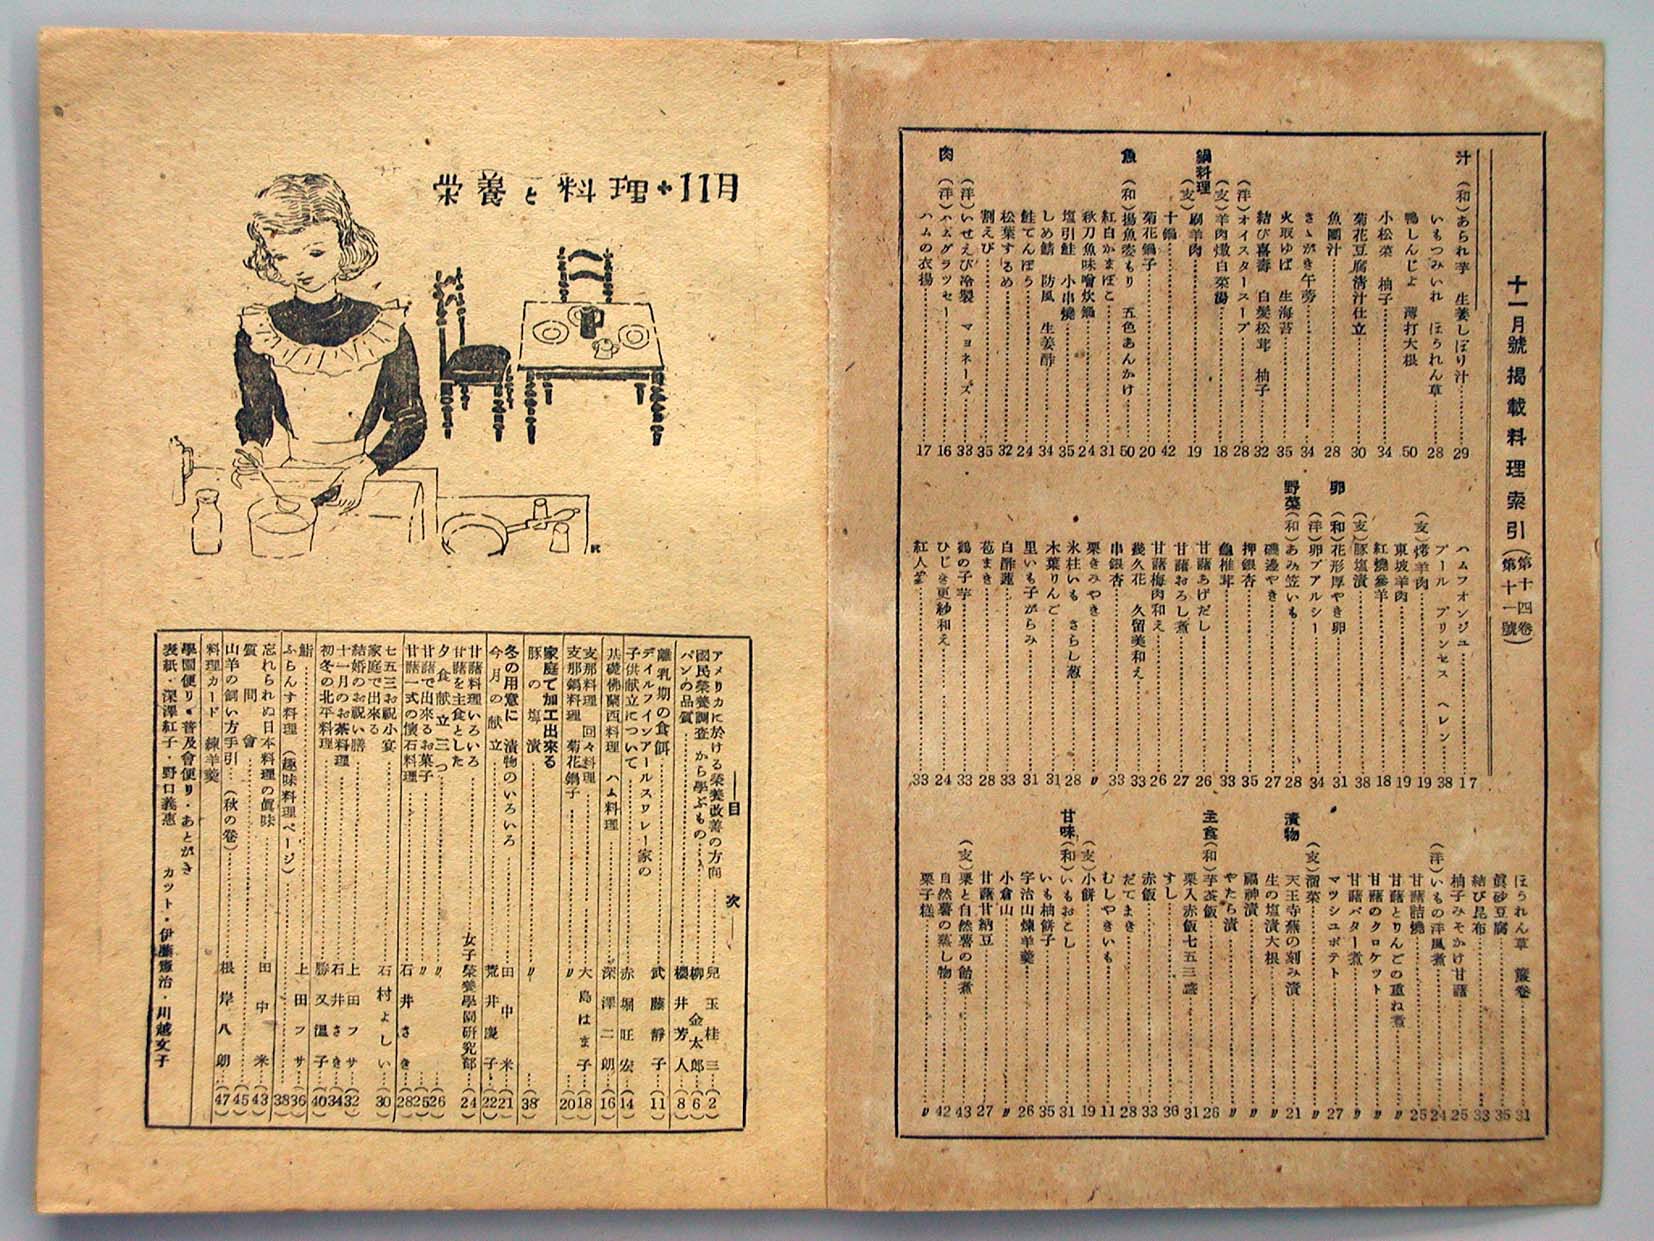 十一月號揭載料理索引（第十四卷 第十一號）
汁（和）あられ芋　生姜しぼり汁……29
いもつみいれ　ほうれん草……28
鴨しんじよ　薄打大根……50
小松菜　柚子……34
菊花豆腐清汁仕立……30
魚團汁……28
さゝがき午蒡……34
火取ゆば　生海苔……35
結び喜壽　白髮松茸　柚子……32
（洋）オイスタースープ……28
（支）羊肉燉白菜湯……18
鍋料理（支）刷羊肉……19
十鍋……42
菊花鍋子……20
魚（和）揚魚姿もり　五色あんかけ……50
紅白かまぼこ……31
秋刀魚味噌炊鍋……24
塩引鮭　小串燒……35
しめ鯖　防風　生姜酢……34
鮭てんぽう……24
松葉するめ……32
割えび……35
（洋）いせえび冷製　マョネーズ……33
肉（洋）ハムグラッセー……16
ハムの衣揚……17
ハムフオンジユ……17
プール　プリンセス　ヘレン……38
（支）烤羊肉……19
東坡羊肉……19
紅燒參羊……18
（支）豚塩漬……38
卵（和）花形厚やき卵……31
（洋）卵ブアルシー……34
野菜（和）あみ笠いも……28
磯邊やき……27
押銀杏……35
龜椎茸……33
甘藷あげだし……26
甘藷おろし煮……27
甘藷梅肉和え……26
幾久花　久留美和え……33
串銀杏……33
栗きみやき……〃
氷柱いも　さらし葱……28
木葉りんご……31
里いも子がらみ……31
白酢蓮……33
苞まき……28
鶴の子芋……33
ひじき更紗和え……24
紅人参……33
ほうれん草　簾卷……31
眞砂豆腐……35
結び昆布……33
柚子みそかけ甘藷……25
（洋）いもの洋風煮……24
甘藷詰燒……25
甘藷とりんごの重ね煮……〃
甘藷のクロケット……〃
甘藷バター煮……〃
マツシユポテト……27
（支）溜菜……〃
漬物　天王寺蕪の刻み漬……21
生の塩漬大根……〃
福神漬……〃
やたら漬……〃
主食（和）芋茶飯……26
栗入赤飯七五三盛……31
すし……36
赤飯……33
だてまき……28
むしやきいも……11
（支）小餅……19
甘味（和）いもおこし……31
いも柚餅子……35
宇治山煉羊羹……26
小倉山……〃
甘藷甘納豆……27
（支）栗と自然薯の飴煮……43
自然薯の蒸し物……42
栗子糕……〃
栄養と料理・11月
――目　次――
アメリカに於ける榮養改善の方向……兒玉桂三…（2）
國民榮養調査から學ぶもの……柳金太郎…（6）
パンの品質……櫻井芳人…（8）
離乳期の食餌……武藤靜子…（11）
デイルフインアールスワレー家の
子供献立について……赤堀旺宏…（14）
基礎佛蘭西料理　ハム料理……深澤二朗…（16）
支那料理　回々料理……大島はま子…（18）
支那鍋料理　菊花鍋子……〃…（20）
家庭で加工出來る
豚の塩漬……〃…（38）
冬の用意に　漬物のいろいろ……田中米…（21）
今月の献立……荒井慶子…（22）
甘藷料理いろいろ
甘藷を主食とした……女子榮養學園研究部…（24）
夕食献立三つ……〃…（26）
甘藷で出來るお菓子……〃…（25）
甘藷一式の懷石料理……石井さき…（28）
七五三お祝小宴……石村よしい…（30）
家庭で出來る
結婚のお祝い膳……上田フサ…（32）
十一月のお茶料理……石井さき…（34）
初冬の北平料理……勝又溫子…（40）
鮨……上田フサ…（36）
ふらんす料理（趣味料理ページ）……（38）
忘れられぬ日本料理の眞味……田中米…（43）
質問會……（45）
山羊の飼い方手引…（秋の卷）……根岸八朗…（47）
料理カード　煉羊羹
學園便り・普及會便り・あとがき
表紙・深澤紅子・野口義惠　カット・伊藤憲治・川越文子